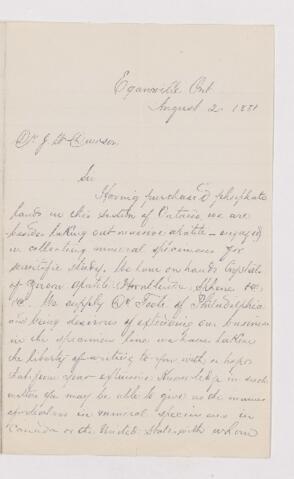 Eganville Ont
August 2. 1881
Dr J. W. Dawson
Sir
Having purchased phosphate
lands in this section of Ontario, we are
besides taking out massive apatite - engaged
in collecting mineral specimens for
scientific study. We have on hand Crystals
of Zircon, Apatite, Hornblende, Sphene &c.
&c. We supply Dr Foote of Philadelphia
and being desirous of extending our business
in the specimen line we have taken
the liberty of writing to you with a hope
that from your extensive knowledge in such
matters you may be able to give us the names
of dealers in mineral specimens in
Canada or the United States with whom